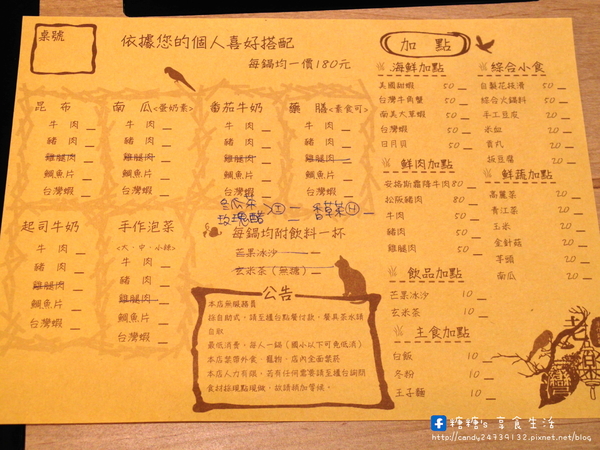 桌號
依據您的個人喜好搭配
每鍋均一價180元
昆布
牛肉
豬肉
雞腿肉
鯛魚片
台灣蝦
南瓜<蛋奶素>
牛肉
豬肉
雞腿肉
鯛魚片
台灣蝦
番茄牛奶
牛肉
豬肉
雞腿肉
鯛魚片
台灣蝦
藥膳<素食可>
牛肉
豬肉
雞腿肉
鯛魚片
台灣蝦
起司牛奶
牛肉
豬肉
雞腿肉
鯛魚片
台灣蝦
手作泡菜
<大、中、小辣>
牛肉
豬肉
雞腿肉
鯛魚片
台灣蝦
冬瓜茶
玫瑰醋
香草茶
每鍋均附飲料一杯
芒果冰沙
玄米茶(無糖)
公告
本店無服務員
採自助式，請至櫃台點餐付款，餐具茶水請
自取
最低消費，每人一鍋(國小以下可免低消)
本店禁帶外食、寵物，店內全面禁菸
本店人力有限，若有任何需要請至櫃台詢問
食材採現點現做，故請稍加等候。
加點
海鮮加點
美國甜蝦 50
台灣牛角蟹 50
南美大草蝦 50
台灣蝦 50
日月貝 50
鮮肉加點
安格斯霜降牛肉80
松阪豬肉 80
牛肉 50
豬肉 50
雞腿肉 50
飲品加點
芒果冰沙 10
玄米茶 10
主食加點
白飯 10
冬粉 10
王子麵 10
綜合小食
自製花枝滑 50
綜合火鍋料 50
手工豆皮 20
米血 20
貢丸 20
板豆腐 20
鮮蔬加點
高麗菜 20
青江菜 20
玉米 20
金針菇 20
芋頭 20
南瓜 20
糖糖's 享食生活
http://candy24739132.pixnet.net/blog